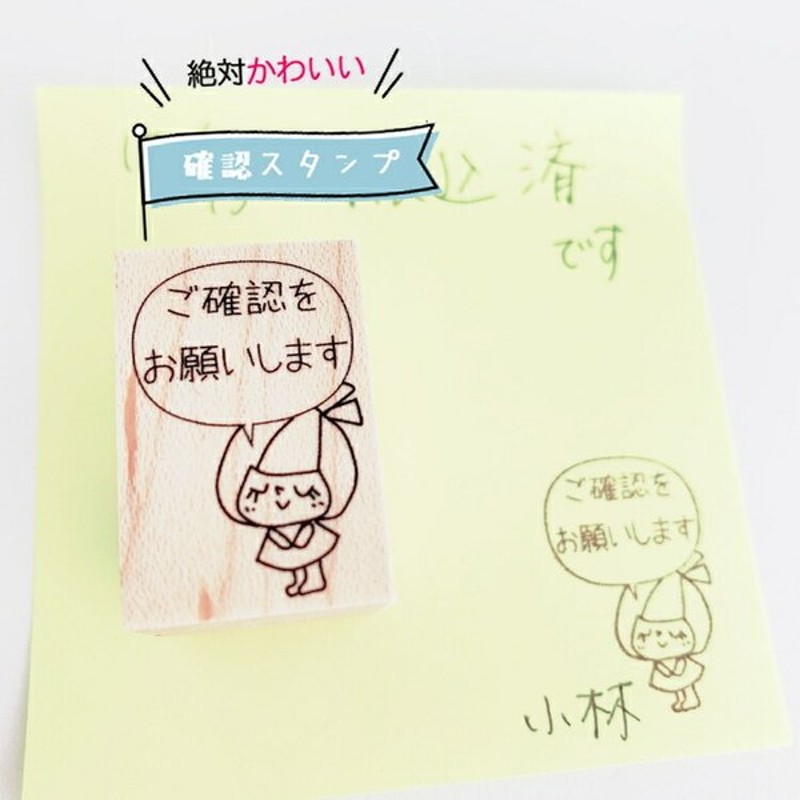 絶対かわいい
確認スタンプ
済
です
ご確認を
お願いします
ご確認を
お願いします
小林